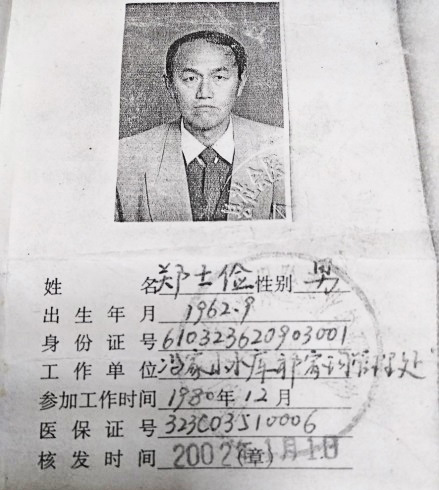 姓名郑士俭性别男
出生年月1962.9
身份证号610323620903001
工作单位冯家山水库部管理处
参加工作时间1980年12月
医保证号323C03510006
核发时间2002年1月1日(章)